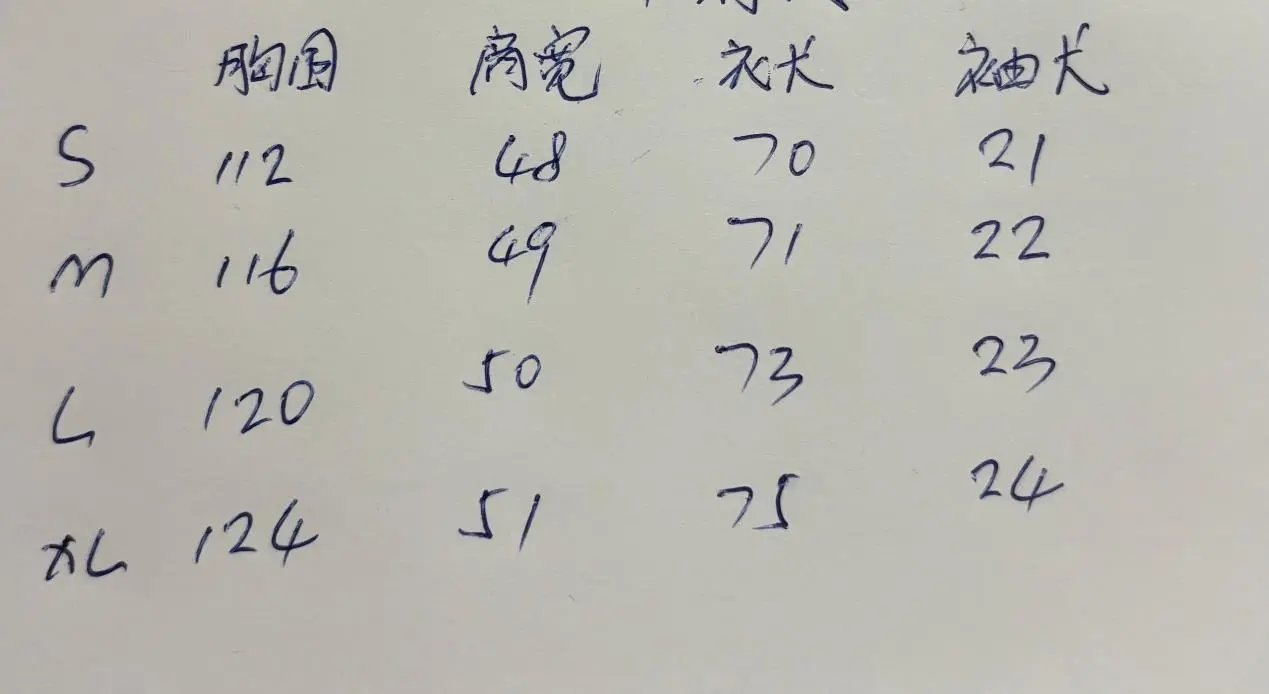 胸围 肩宽 衣长 袖长
S 112 48 70 21
M 116 49 71 22
L 120 50 73 23
XL 124 51 75 24